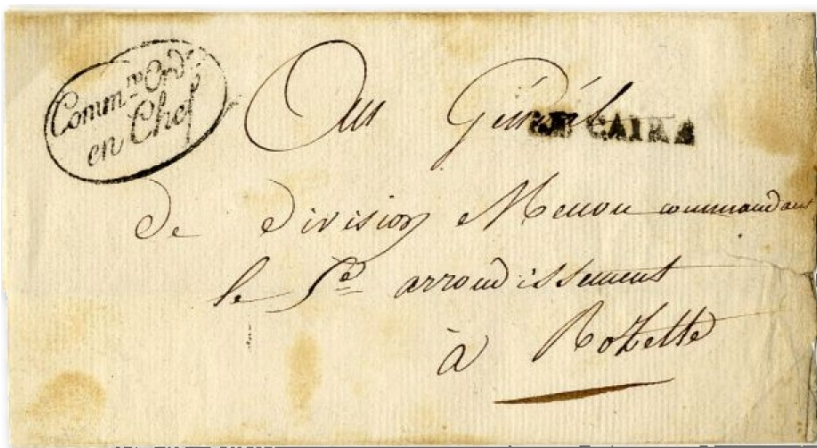 Comm.re Ord.r
en Chef
Au Général
LE CAIRE
de division Menou commandant
le 5e arrondissement
à Rozette